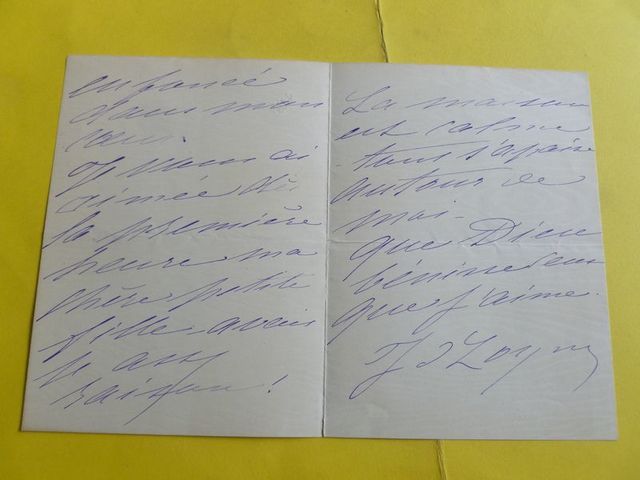 enfoncé
dans mon
cœur.
Je vous ai
aimée dès
la première
heure ma
chère petite
fille. avais
je ass
raison!
La maison
est calme
tout s'apaise
autour de
moi.
que Dieu
bénisse ceux
que j'aime.